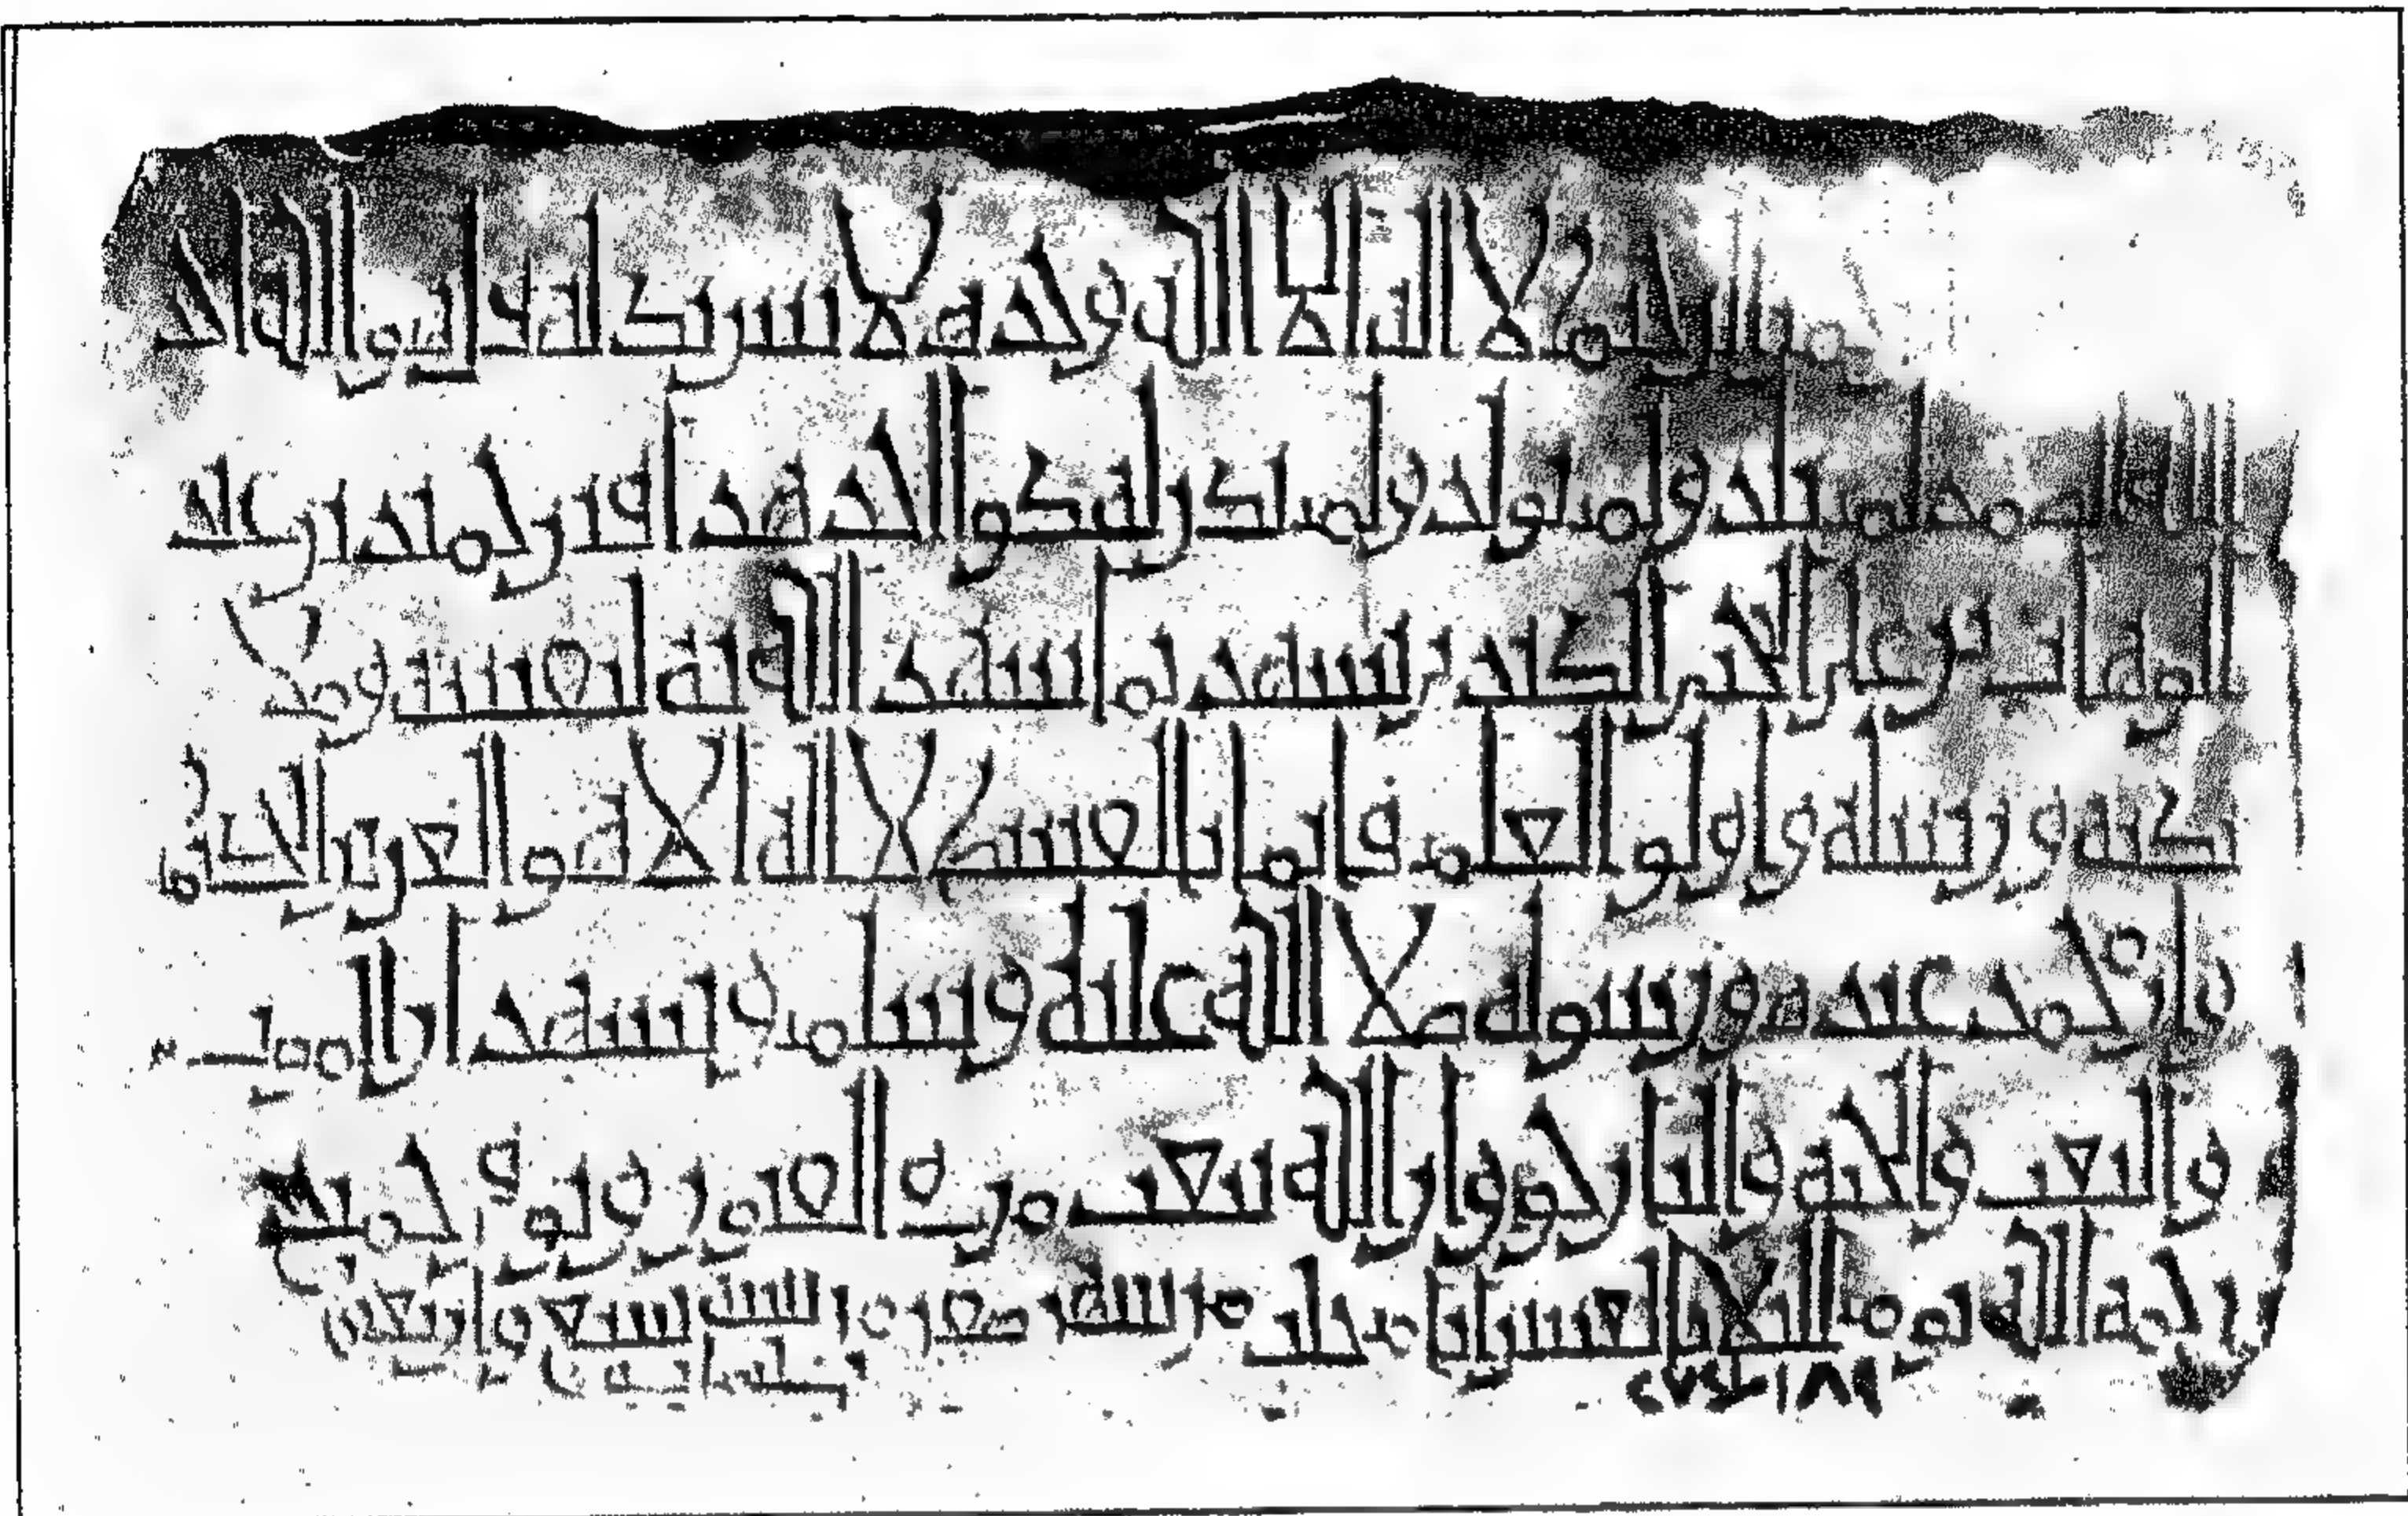 الرحيم لا اله الا الله وحده لا شريك له قل هو الله احد
الله الصمد لم يلد ولم يولد ولم يكن له كفوا احد هدا قبر
بن علي الكندي يشهد بما شهد الله به لنفسه وملا
ئكته ورسله واولوا العلم قائما بالقسط لا اله الا هو العزيز الحكيم
وان محمد عبده ورسوله صلا الله عليه وسلم ويشهد ان الموت
والبعث والجنة والنار حق وان الله يبعث من في القبور توفي
رحمه الله يوم الثلاثا لعشر ايام خلت من شهر صفر من السنة تسع واربعين